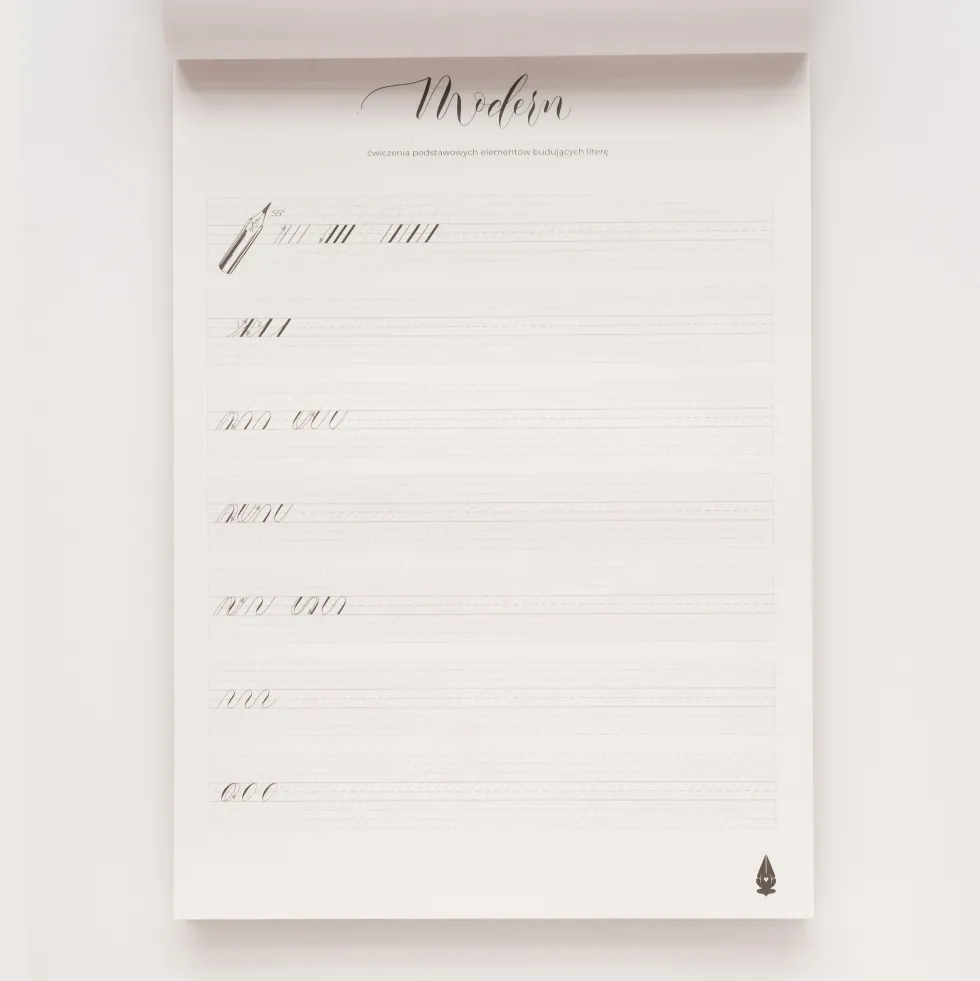 Modern
ćwiczenia podstawowych elementów budujących literę
55°